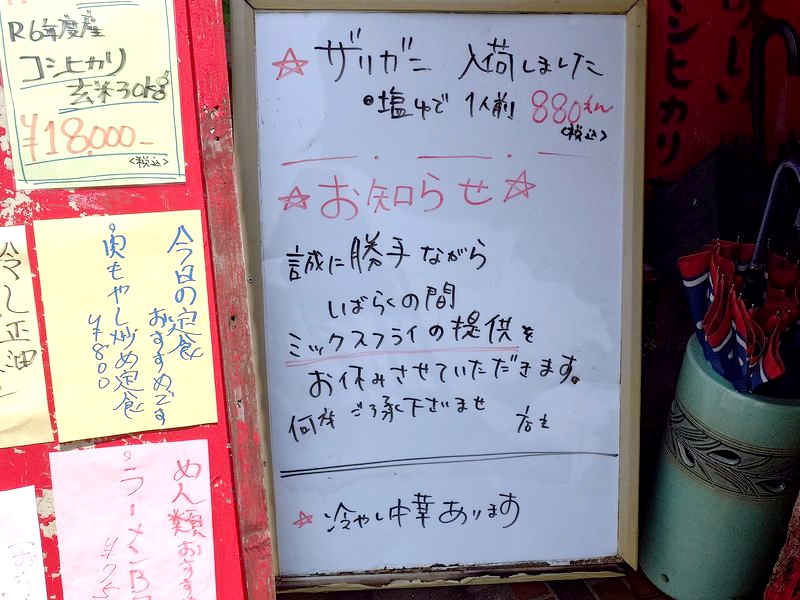 R6年度産
コシヒカリ
玄米30kg
¥18,000-
<税込>
今日の定食
おすすめです
肉もやし炒め定食
¥800
冷し正油
めん類おすすめ
ラーメンB
☆ ザリガニ 入荷しました
•塩ゆで 1人前 880えん
<税込>
☆お知らせ☆
誠に勝手ながら
しばらくの間
ミックスフライの提供を
お休みさせていただきます。
何卒 ご了承下さいませ 店主
☆ 冷やし中華あります
コシヒカリ